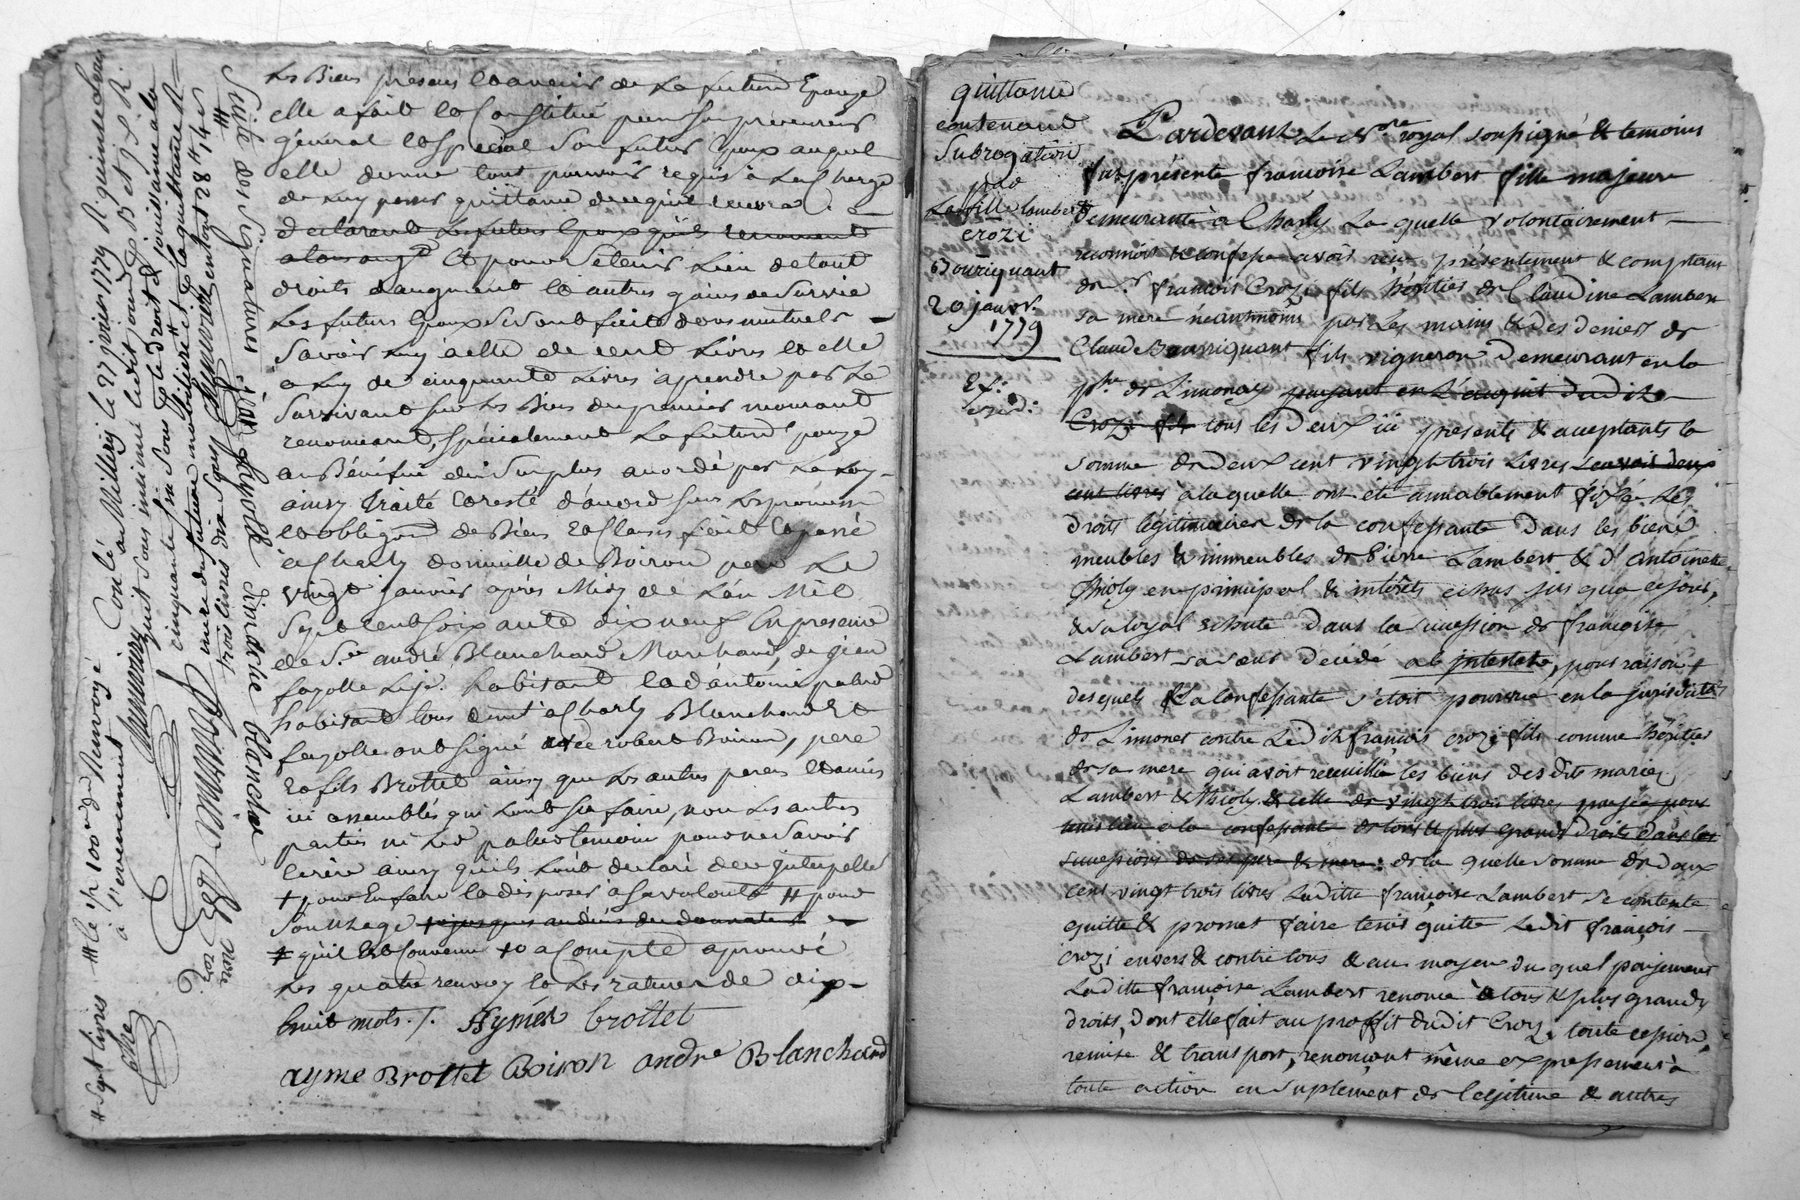 les Biens présens et avenir de la future Epouze
elle a fait et Constitué pour son procureur
général et spécial son futur Epoux auquel
elle donne tout pouvoir requis à la Charge
de luy passer quittance de ce qu'il recevra
declarent les futurs Epoux qu'ils renoncent
Et pour Se tenir Lieu de tout
droits d'augment et autres gains de Survie
Les futurs Epoux Se sont faits dons mutuels
Savoir luy à elle de cent Livres et elle
a luy de cinquante Livres aprendre par Le
Survivant sur les Biens du premier mourant
renonceant, spécialement La future Epouze
au Bénéfice du Surplus acordé par La Loy
ainsy Traité et resté d'acord sous les promesses
et obligaon de Biens et Clauses fait et passé
à Charly domicille de Boiron pere Le
vingt janvier après Midy de L'an Mil
Sept cent soixante dix neuf En presence
de S.r andré Blanchard Marchand, de
fayolle habitant et d'antoine palud
habitant tous deux à Charly Blanchard Et
fayolle ont signé avec robert Boiron, pere
et fils Brottet ainsy que les autres parens et amis
ici assemblés qui l'ont sçu faire, non les autres
parties ni led palud temoin pour ne savoir
écrire ainsy qu'ils l'ont declaré de ce interpellés
+ pour En faire et disposer à Sa volonté # pour
Son usage
qu'il Est Convenu a Compte aprouvé
Les quatre renvoy et les ratures de dix
huit mots ./. Aymée brottet
ayme Brottet Boiron andre Blanchard
Suite des Signatures
fayolle andrée blanchet
Conlé
à Millery le 27 janvier 1779 R. quinse Livres
quinse sous insinué Ledit jour
cinquante six sous p. le droit de jouissance a la
mere du futur mobiliere et p. la quittance R
trois livres dix sous en tout 28 # 14 s
# Sept livres ## le #100# du Renvoyé
à l'evenement
quittance
contenant
Subrogation
par
La fille Lambert
crozi
Bouriquant
20 janv.r
1779
Ex:
exped:
Pardevant Le No.re royal soussigné & temoins
fut présente francoise Lambert fille majeure
demeurante à Charly La quelle volontairement
reconnoit & confesse avoir reçu présentement & comptant
de S.r francois Crozi fils héritier de Claudine Lambert
sa mere neantmoins par les mains & des deniers de
Claude Bourriquant fils vigneron Demeurant en la
p.sse de Limonay payant en l'acquit dudit
Crozi fils tous les deux ici presents & acceptants la
somme de deux cent vingt trois Livres sçavoir deux
cent livres à laquelle ont été amiablement fixés Les
droits légitimaires de la confessante Dans les biens
meubles & immeubles de Pierre Lambert & d'antoinette
Thioly en principal & intérêts echus jusqua ce jour,
& sa loyal echute Dans la succession de francoise
Lambert sa sœur decédé ab intestate, pour raison
desquels La Confessante s'étoit pourvue en la jurisdiction
de Limonet contre Ledit francois crozi fils comme héritier
de sa mere qui avoit recueilli les biens des dits mariez
Lambert & Thioly & celle de vingt trois livres payée pour
tenir lieu a la confessante de tous & plus grands droits Dans les
successions de ses pere & mere: de la quelle somme de Deux
cent vingt trois livres Laditte francoise Lambert se contente
quitte & promet faire tenir quitte Ledit françois
crozi envers & contre tous & au moyen du quel payement
Laditte francoise Lambert renonce à tous & plus grands
droits, dont elle fait au proffit dudit Crozi toute cession,
remise & transport, renonçant même expressement à
toute action en suplement de legitime & autres